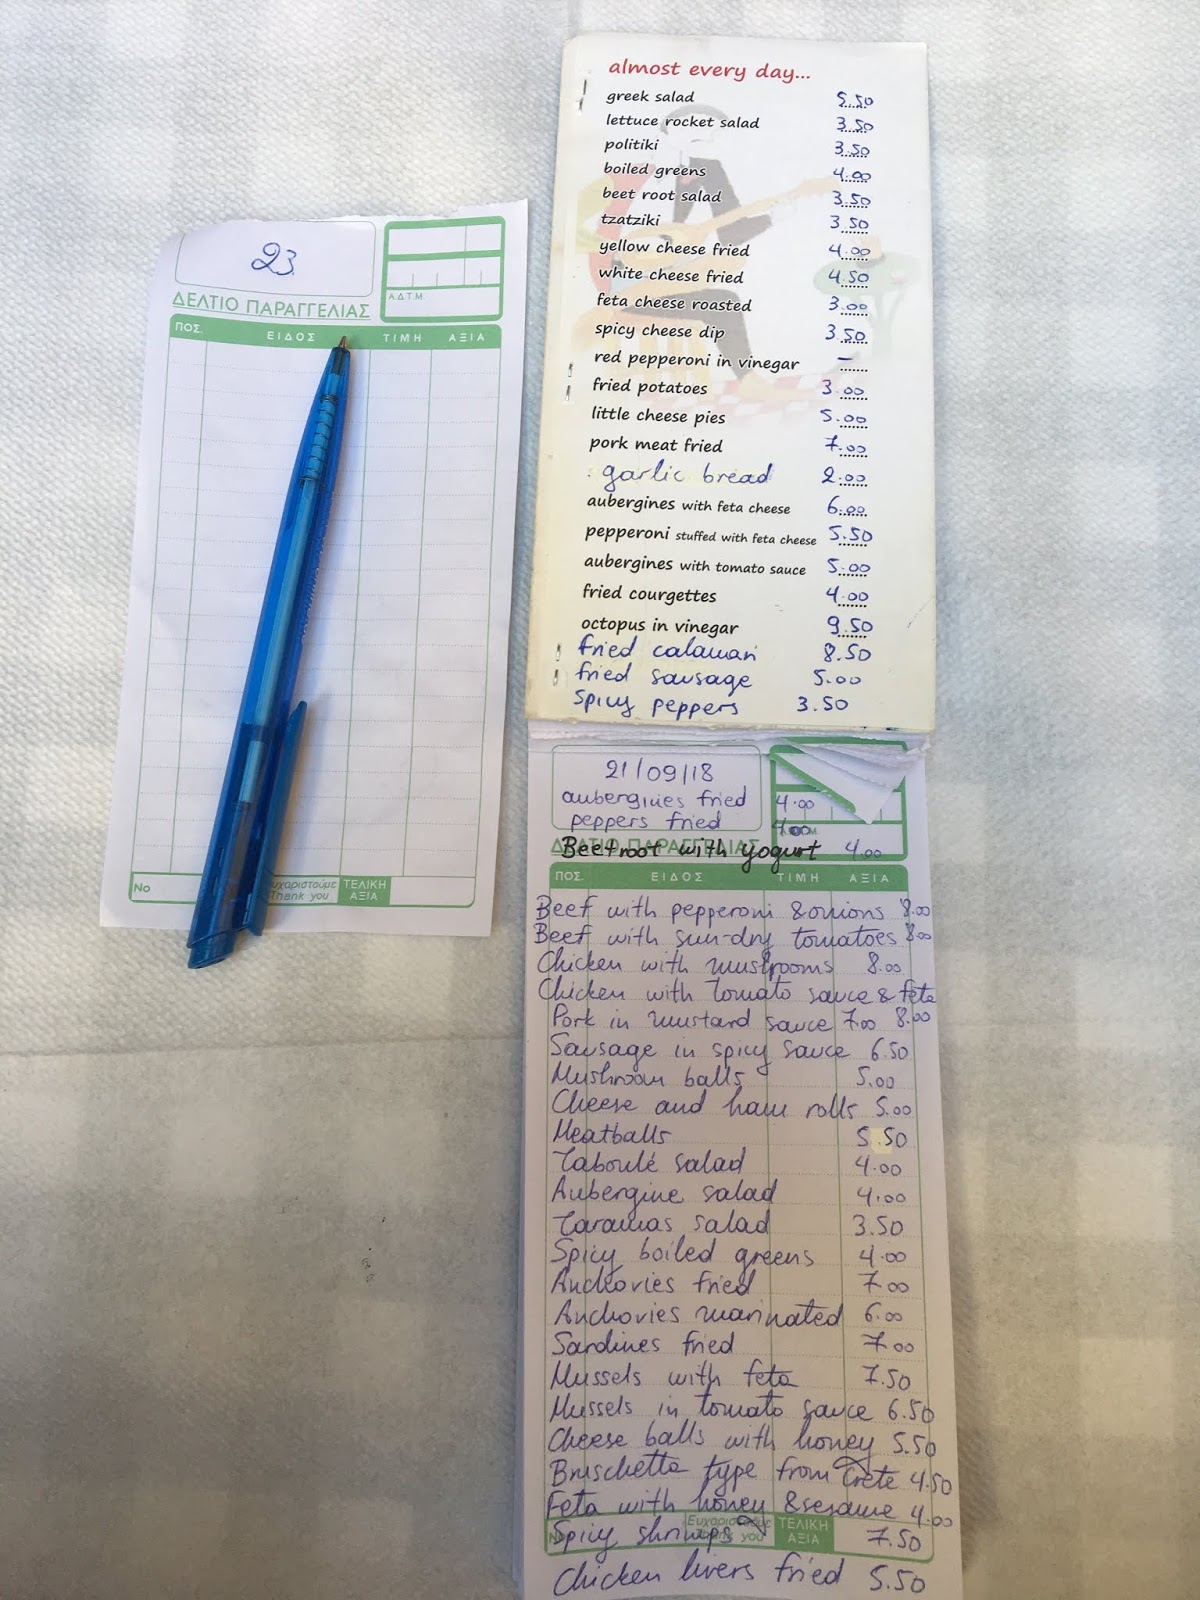 23
ΔΕΛΤΙΟ ΠΑΡΑΓΓΕΛΙΑΣ
Α.Δ.Τ.Μ.
ΠΟΣ. ΕΙΔΟΣ ΤΙΜΗ ΑΞΙΑ
No Ευχαριστούμε Thank you ΤΕΛΙΚΗ ΑΞΙΑ
almost every day...
greek salad 5.50
lettuce rocket salad 3.50
politiki 3.50
boiled greens 4.00
beet root salad 3.50
tzatziki 3.50
yellow cheese fried 4.00
white cheese fried 4.50
feta cheese roasted 3.00
spicy cheese dip 3.50
red pepperoni in vinegar –
fried potatoes 3.00
little cheese pies 5.00
pork meat fried 7.00
garlic bread 2.00
aubergines with feta cheese 6.00
pepperoni stuffed with feta cheese 5.50
aubergines with tomato sauce 5.00
fried courgettes 4.00
octopus in vinegar 9.50
fried calamari 8.50
fried sausage 5.00
spicy peppers 3.50
21/09/18
aubergines fried 4.00
peppers fried 4.00
ΔΕΛΤΙΟ ΠΑΡΑΓΓΕΛΙΑΣ
Beetroot with yogurt 4.00
ΠΟΣ. ΕΙΔΟΣ ΤΙΜΗ ΑΞΙΑ
Beef with pepperoni & onions 8.00
Beef with sun-dry tomatoes 8.00
Chicken with mushrooms 8.00
Chicken with tomato sauce & feta
Pork in mustard sauce 7.00 8.00
Sausage in spicy sauce 6.50
Mushroom balls 5.00
Cheese and ham rolls 5.00
Meatballs 5.50
Taboulé salad 4.00
Aubergine salad 4.00
Taramas salad 3.50
Spicy boiled greens 4.00
Anchovies fried 7.00
Anchovies marinated 6.00
Sardines fried 7.00
Mussels with feta 7.50
Mussels in tomato sauce 6.50
Cheese balls with honey 5.50
Bruschetta type from Crete 4.50
Feta with honey & sesame 4.00
Ευχαριστούμε Thank you ΤΕΛΙΚΗ ΑΞΙΑ
Spicy shrimps 7.50
Chicken livers fried 5.50